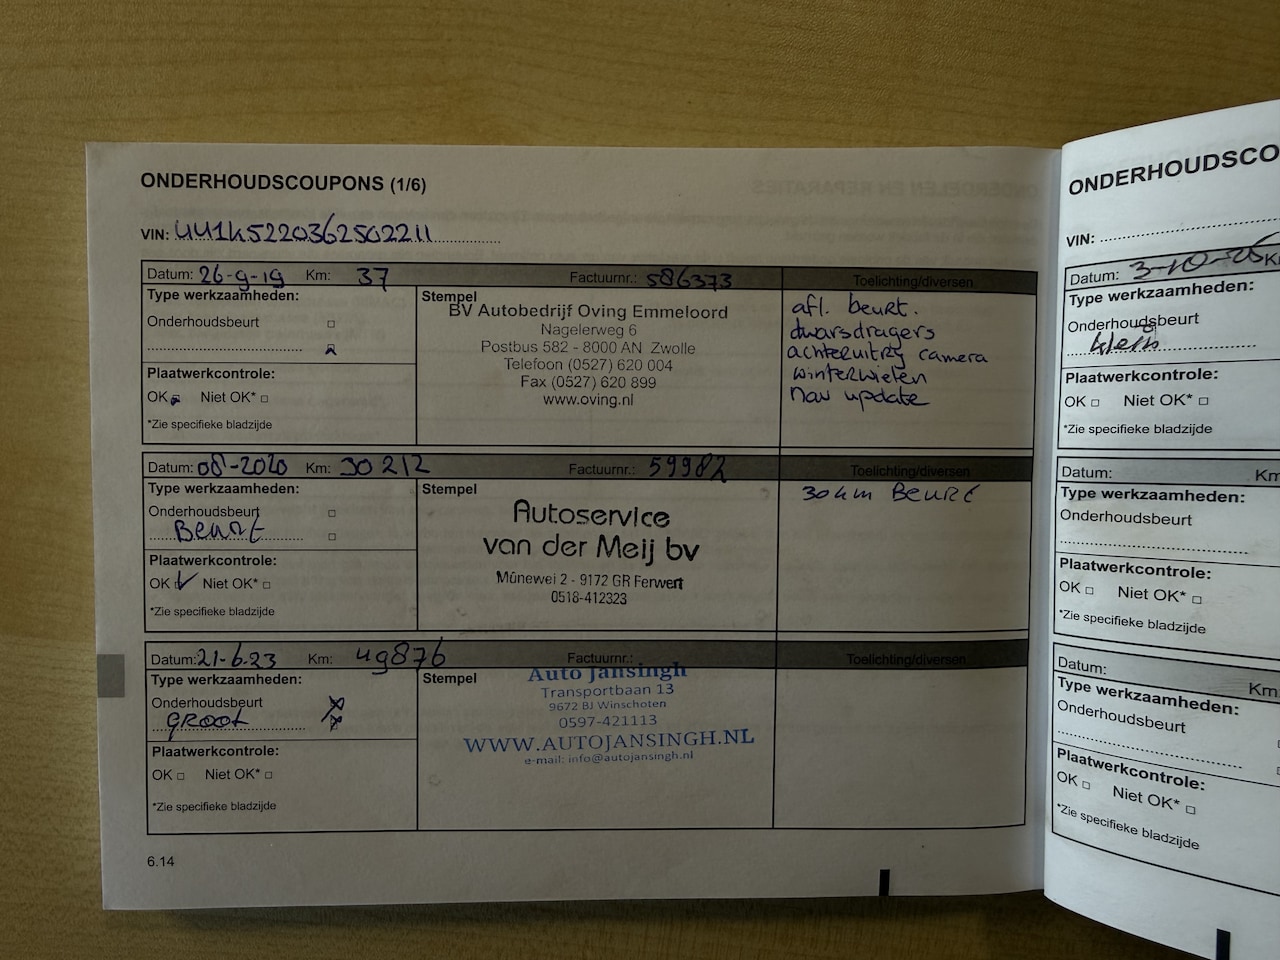 ONDERHOUDSCOUPONS (1/6)
VIN: UU1K5220362502211
Datum: 26-9-19 Km: 37 Factuurnr.: 586373 Toelichting/diversen
Type werkzaamheden:
Onderhoudsbeurt
Plaatwerkcontrole:
OK Niet OK*
*Zie specifieke bladzijde
Stempel
BV Autobedrijf Oving Emmeloord
Nagelerweg 6
Postbus 582 - 8000 AN Zwolle
Telefoon (0527) 620 004
Fax (0527) 620 899
www.oving.nl
afl. beurt.
dwarsdragers
achteruitrij camera
winterwielen
nav update
Datum: 08-2020 Km: 30212 Factuurnr.: 59982 Toelichting/diversen
Type werkzaamheden:
Onderhoudsbeurt
Beurt
Plaatwerkcontrole:
OK Niet OK*
*Zie specifieke bladzijde
Stempel
Autoservice
van der Meij bv
Mûnewei 2 - 9172 GR Ferwert
0518-412323
30 km Beurt
Datum: 21-6-23 Km: 49876 Factuurnr.: Toelichting/diversen
Type werkzaamheden:
Onderhoudsbeurt
GROOT
Plaatwerkcontrole:
OK Niet OK*
*Zie specifieke bladzijde
Stempel
Auto Jansingh
Transportbaan 13
9672 BJ Winschoten
0597-421113
WWW.AUTOJANSINGH.NL
e-mail: info@autojansingh.nl
6.14
ONDERHOUDSCO
VIN:
Datum: 3-10-25 K
Type werkzaamheden:
Onderhoudsbeurt
klein
Plaatwerkcontrole:
OK Niet OK*
*Zie specifieke bladzijde
Datum: Km
Type werkzaamheden:
Onderhoudsbeurt
Plaatwerkcontrole:
OK Niet OK*
*Zie specifieke bladzijde
Datum: Km:
Type werkzaamheden:
Onderhoudsbeurt
Plaatwerkcontrole:
OK Niet OK*
*Zie specifieke bladzijde